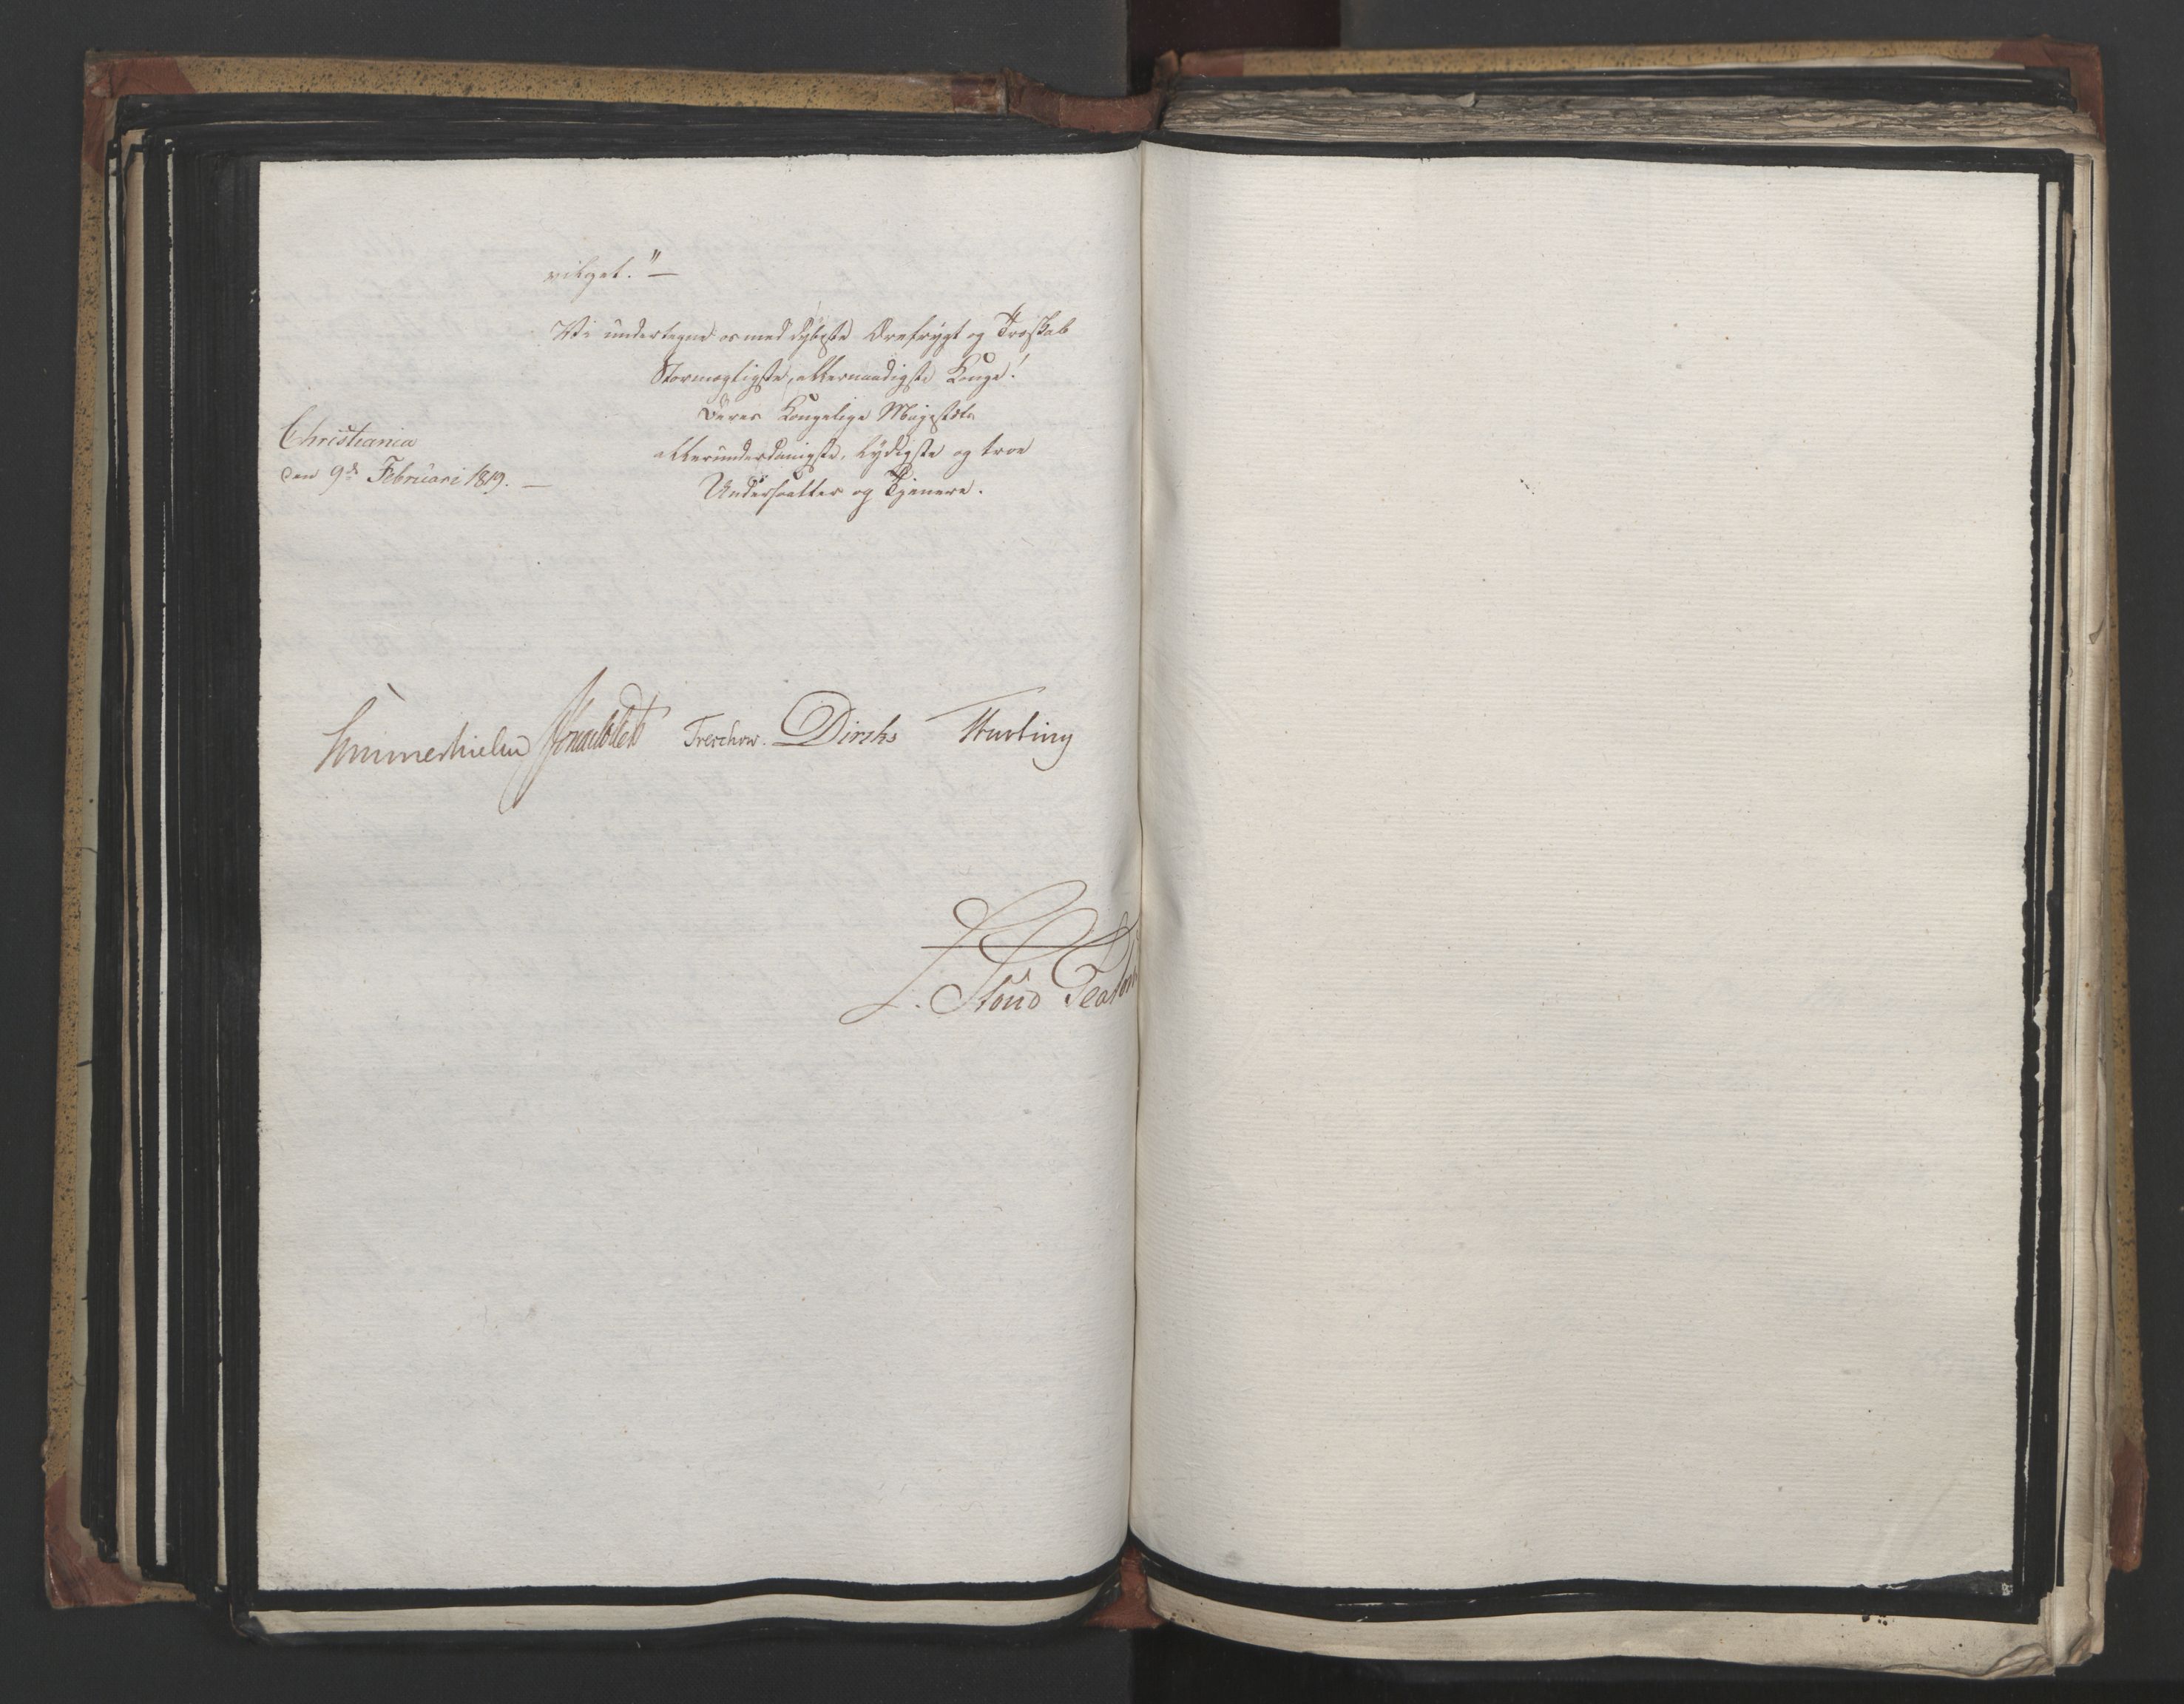 vilget."—
Vi undertegne os med dybeste Ærefrygt og Troskab
Stormægtigste, allernaadigste Konge!
Deres Kongelige Majestæts
allerunderdanigste, lydigste og troe
Undersaatter og Tjenere.
Christiania
den 9de Februari 1819. —
Sommerhielm Treschow. Diriks
L. Stoud Platou